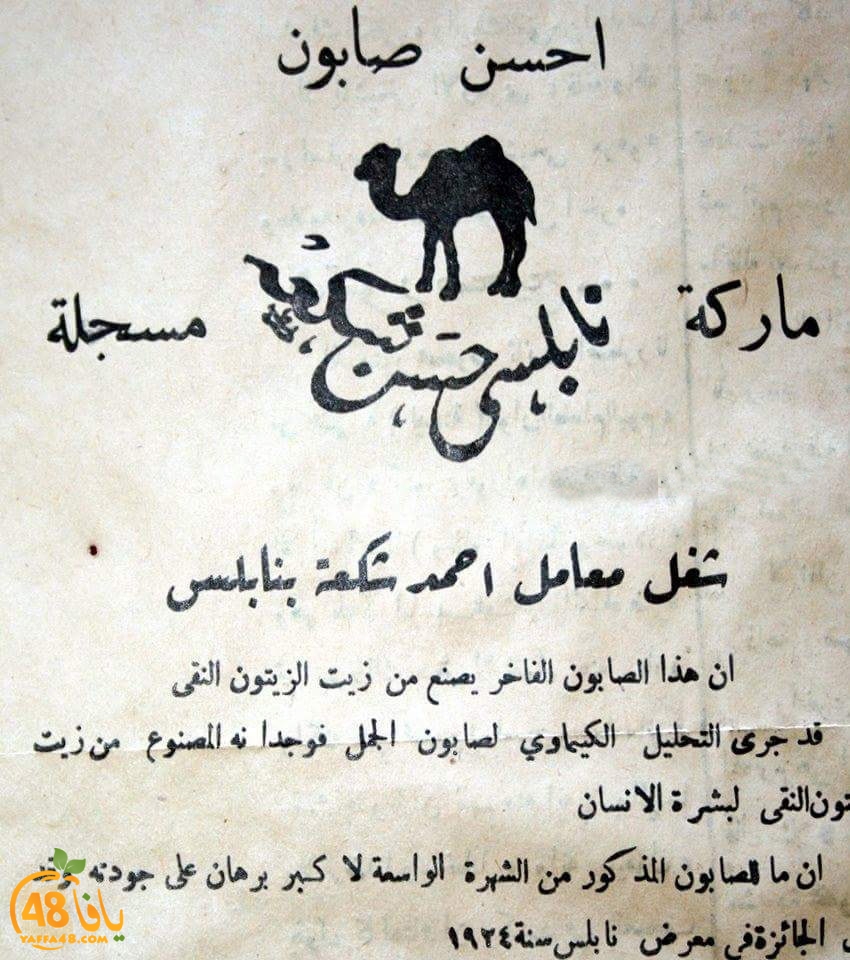 احسن صابون
ماركة نابلسي حسن شكعة مسجلة
شغل معامل احمد شكعة بنابلس
ان هذا الصابون الفاخر يصنع من زيت الزيتون النقى
قد جرى التحليل الكيماوي لصابون الجمل فوجدا نه المصنوع من زيت
تون النقى لبشرة الانسان
ان ما للصابون المذكور من الشهرة الواسعة لا كبر برهان على جودته وقد
الجائزة في معرض نابلس سنة ١٩٢٤
يافا 48
YAFFA48.COM